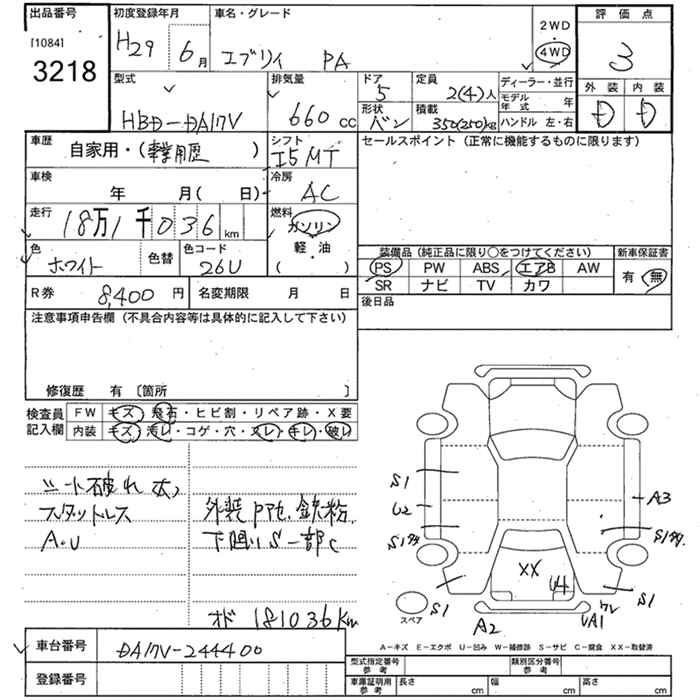 出品番号 初度登録年月 車名・グレード 2WD 評価点
[1084] H29年 6月 エブリイ PA 4WD 3
3218
型式 排気量 ドア 定員 ディーラー・並行 外装 内装
HBD-DA17V 660cc 5 2(4)人 モデル年式 年 D D
形状 積載
バン 350(250)kg ハンドル 左・右
車歴 シフト セールスポイント (正常に機能するものに限ります)
自家用・( ) I5MT
車検 冷房
年 月( 日) AC
走行 燃料
18万1千036km ガソリン
色 色替 色コード 軽・油 装備品 (純正品に限り○をつけてください) 新車保証書
ホワイト 26U ( ) PS PW ABS エアB AW 有・無
SR ナビ TV カワ
R券 8,400円 名変期限 月 日 後日品
注意事項申告欄 (不具合内容等は具体的に記入して下さい)
修復歴 有 〔箇所 〕
検査員 FW キズ・飛石・ヒビ割・リペア跡・X要
記入欄 内装 キズ・汚レ・コゲ・穴・スレ・キレ・破レ
シート破れ大
スタットレス
A・U
外装Pアセ、鉄粉
下廻りS一部C
オド 181036km
S1 A3
U2
S1 S1
XX U4
S1 S1
スペア A2 A1
車台番号 DA17V-244400
A-キズ E-エクボ U-凹み W-補修跡 S-サビ C-腐食 XX-取替済
登録番号
型式指定番号 参考 類別区分番号 参考
車庫証明用 参考 長さ cm 幅 cm 高さ cm